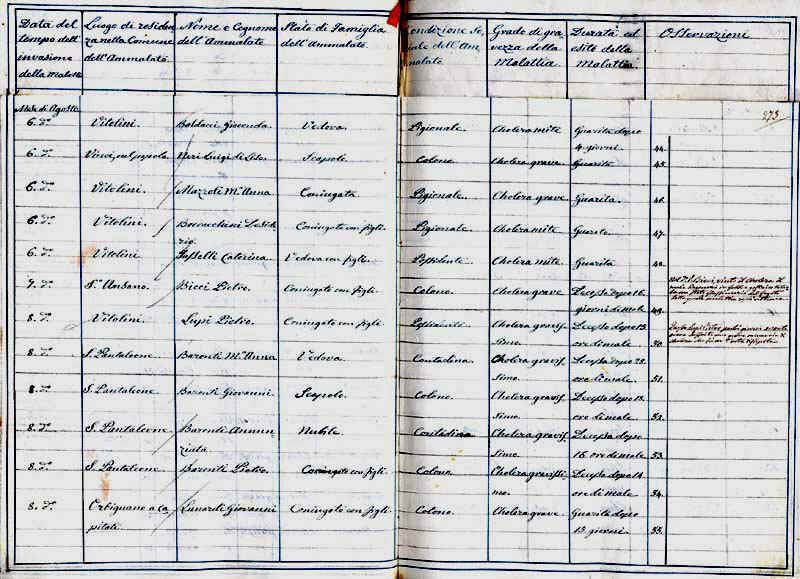 Data del tempo dell' invasione della Malattia
Luogo di residenza nella Comune dell'Ammalato
Nome e Cognome dell'Ammalato
Stato di Famiglia dell'Ammalato
Condizione Sociale dell'Ammalato
Grado di gravezza della Malattia
Durata ed esito della Malattia
Osservazioni
273
Mese di Agosto
6. do. Vitolini. Baldacci Gioconda. Vedova. Pigionale. Cholera mite Guarita dopo
4 giorni. 44.
6. do. Vinci, nel popolo Neri Luigi di Scapolo. Colono. Cholera grave. Guarito. 45.
6. do. Vitolini. Mazzoli Ma. Anna Coniugata. Pigionale. Cholera grave Guarita. 46.
6. do. Vitolini. Coniugato con figli. Pigionale. Cholera mite. Guarito. 47.
6. do. Vitolini Caterina. Vedova con figli. Possidente. Cholera mite. Guarita. 48.
7. do. Sto. Ansano. Bicci Pietro. Coniugato con figli. Colono. Cholera grave. Decesso dopo 16.
giorni di male. 49.
8. do. Vitolini. Lupi Pietro. Coniugato con figli. Cholera gravis- Decesso dopo 13.
simo. ore di male. 50.
8. do. S. Pantaleone. Baronti Ma. Anna Vedova. Contadina. Cholera gravis- Decessa dopo 22.
simo. ore di male. 51.
8. do. S. Pantaleone. Baronti Giovanni. Scapolo. Colono. Cholera gravis- Decesso dopo 12.
simo. ore di male. 52.
8. do. S. Pantaleone. Baronti Annun- Nubile. Contadina. Cholera gravis- Decessa dopo
ziata. simo. 16 ore di male. 53.
8. do. S. Pantaleone. Baronti Pietro. Coniugato con figli. Colono. Cholera gravissi- Decesso dopo 14.
mo. ore di male. 54.
8. do. Orbignano a La- Lunardi Giovanni Coniugato con figli. Colono. Cholera grave. Guarito dopo
pitati. 13 giorni. 55.